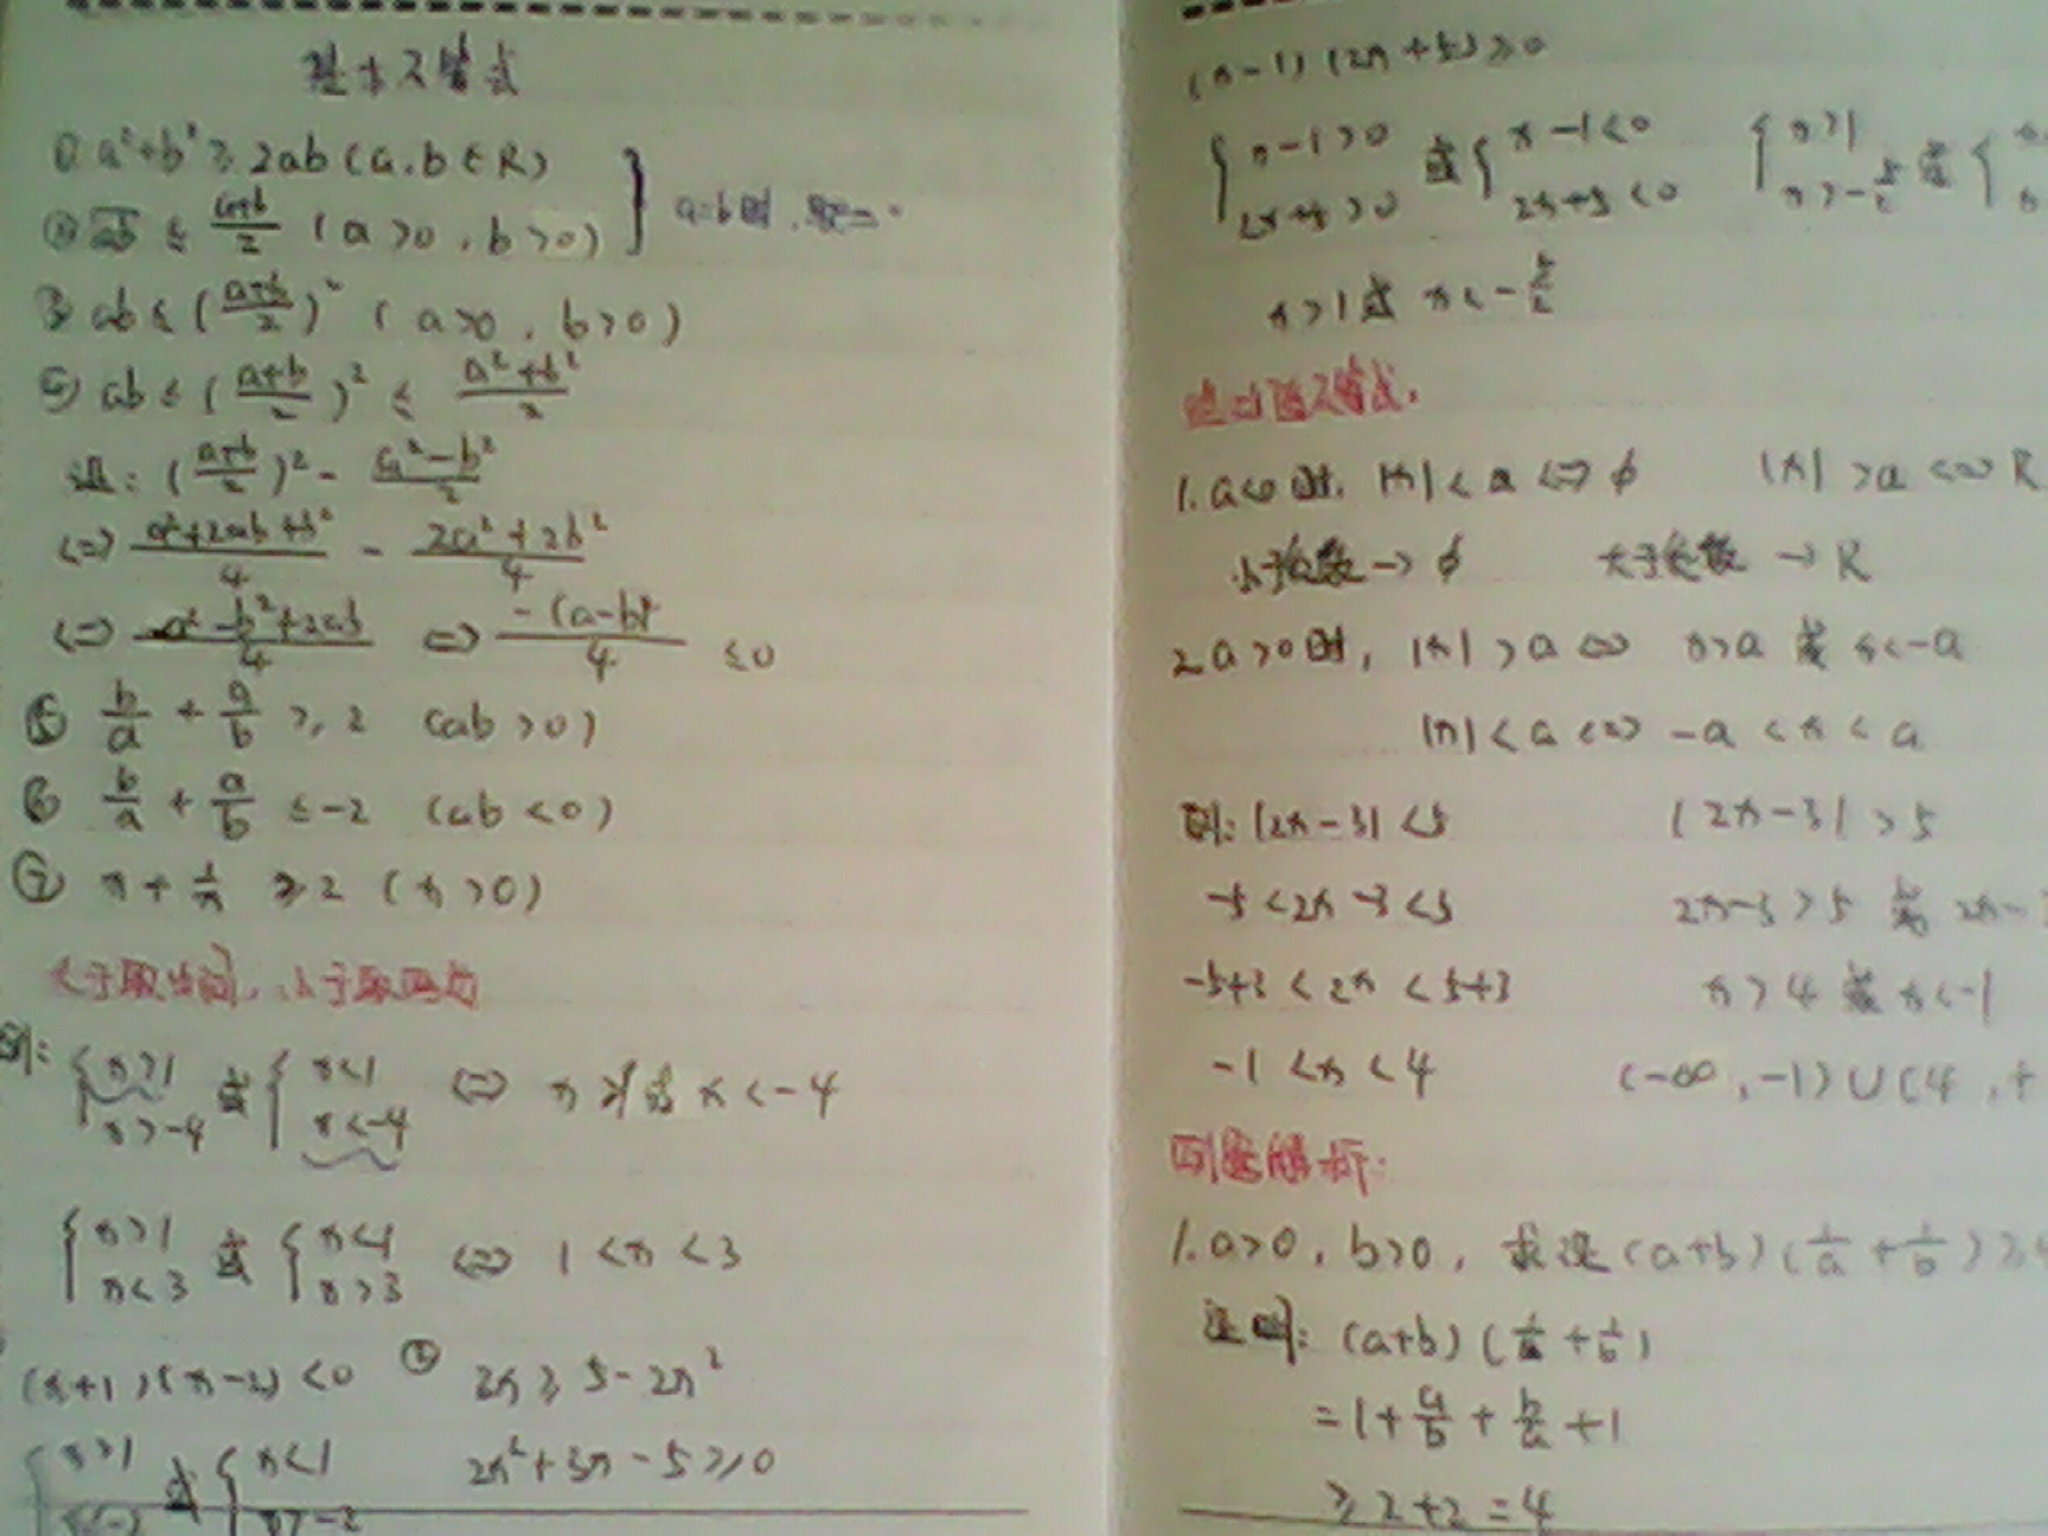 基本不等式
① a²+b² ≥ 2ab (a,b∈R)
② √ab ≤ (a+b)/2 (a>0, b>0) } a=b时,取"="
③ ab ≤ ((a+b)/2)² (a>0, b>0)
④ ab ≤ ((a+b)/2)² ≤ (a²+b²)/2
证: ((a+b)/2)² - (a²-b²)/2
<=> (a²+2ab+b²)/4 - (2a²+2b²)/4
<=> (-a²-b²+2ab)/4 <=> -(a-b)²/4 ≤0
⑤ b/a + a/b ≥ 2 (ab>0)
⑥ b/a + a/b ≤ -2 (ab<0)
⑦ x + 1/x ≥ 2 (x>0)
大于取中间,小于取两边
例: {x>1 x>-4 或 {x<1 x<-4 <=> x>1 或 x<-4
{x>1 x<3 或 {x<1 x>3 <=> 1<x<3
(x+1)(x-2)<0 ② 3x ≥ 5-2x²
{x>1 x<-2 或 {x<1 x>-2 2x²+3x-5≥0
(x-1)(2x+5)≥0
{x-1>0 2x+5>0 或 {x-1<0 2x+5<0 {x>1 x>-5/2 或 {
x>1 或 x<-5/2
绝对值不等式:
1. a<0时, |x|<a <=> ∅ |x|>a <=> R
小于负数 → ∅ 大于负数 → R
2. a>0时, |x|>a <=> x>a 或 x<-a
|x|<a <=> -a<x<a
例: |2x-3|<5 |2x-3|>5
-5<2x-3<5 2x-3>5 或 2x-3
-5+3<2x<5+3 x>4 或 x<-1
-1<x<4 (-∞,-1)∪(4,+
例题解析:
1. a>0, b>0, 求证 (a+b)(1/a+1/b)≥4
证明: (a+b)(1/a+1/b)
=1+a/b+b/a+1
≥2+2=4